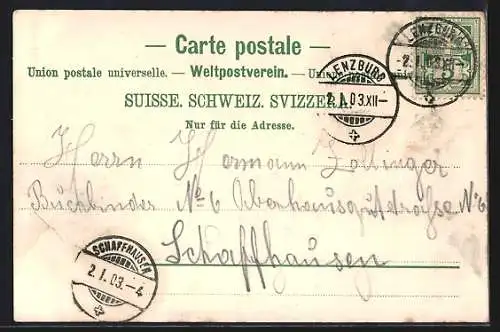 — Carte postale —
Union postale universelle. — Weltpostverein. — Union
SUISSE. SCHWEIZ. SVIZZERA.
Nur für die Adresse.
LENZBURG
2.I.03.XII—
LENZBURG
-2.I.03.XII—
Herrn Hermann Zollinger
Buchbinder No 6 Oberhausgutstrasse No 6
Schaffhausen
SCHAFFHAUSEN
2.I.03.—4